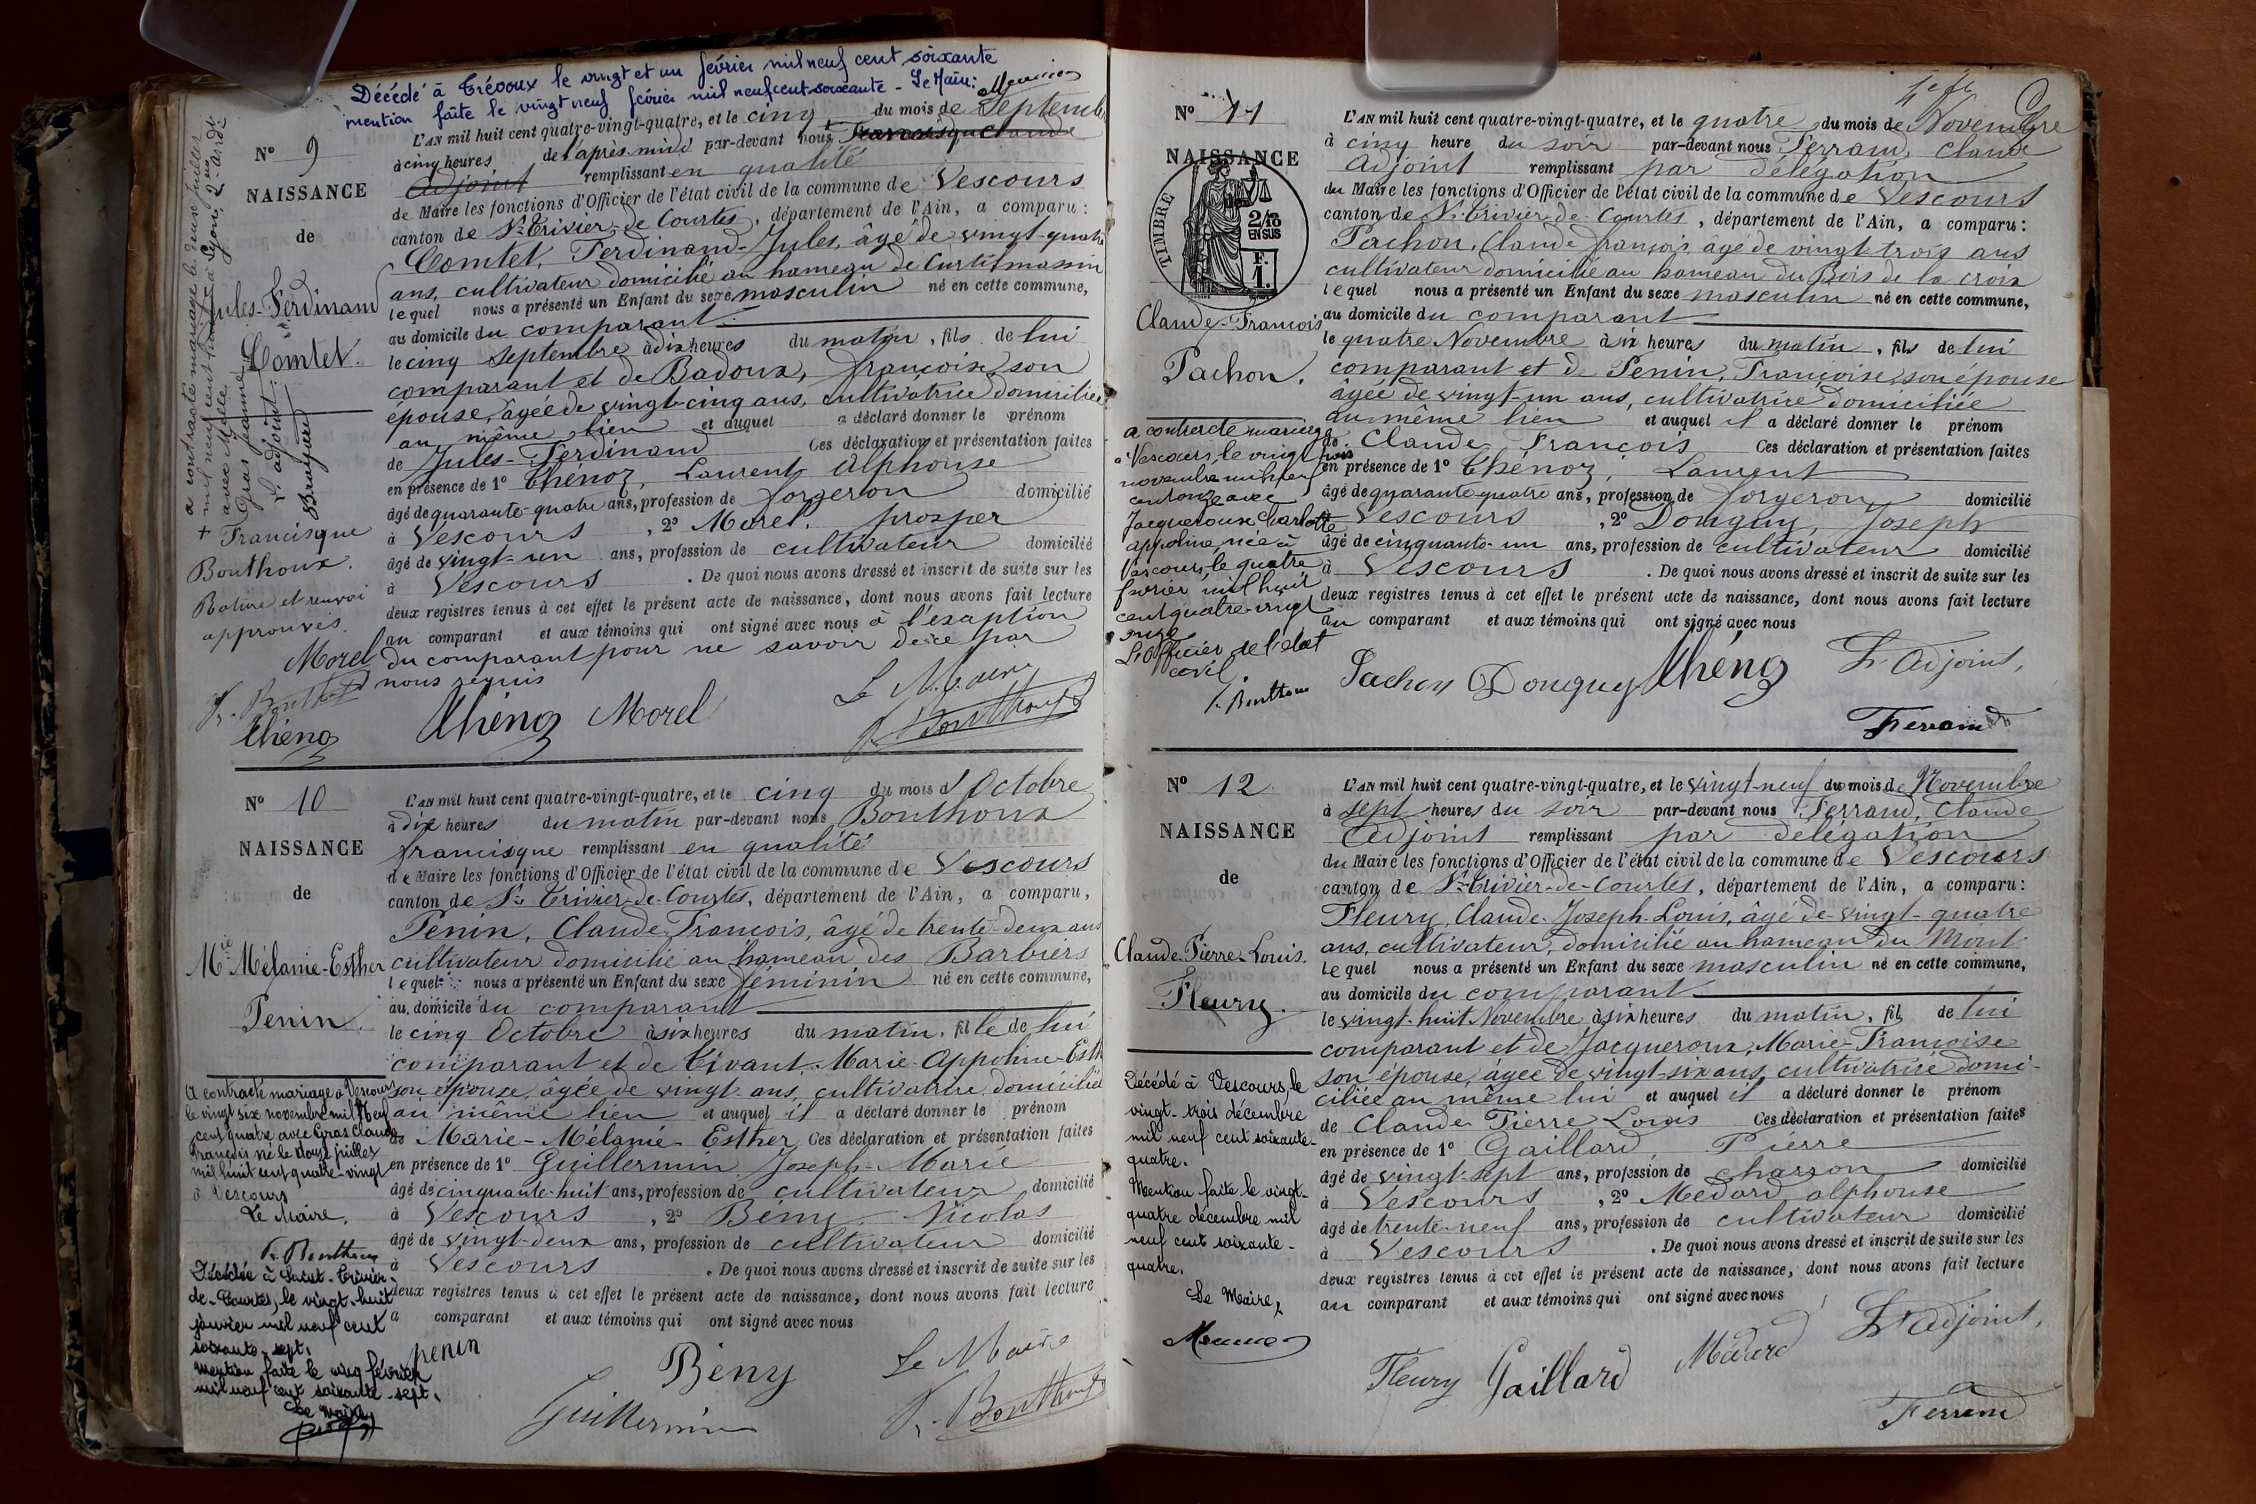 Décédé à Trévoux le vingt et un février mil neuf cent soixante
mention faite le vingt neuf février mil neuf cent soixante - Le Maire:
N° 9
NAISSANCE
de
Jules-Ferdinand
Comtet.
a contracté mariage le deux juillet
mil neuf cent huit à Lyon, 2me arrdt
avec Melle
Gras Jeanne
L'adjoint:
Bruyère
+ Francisque
Bouthoux.
Rature et renvoi
approuvés.
Morel
F. Bouthoux
Thénoz
L'AN mil huit cent quatre-vingt-quatre, et le cinq du mois de Septembre
à cinq heures de l'après-midi par-devant nous + Francisque Claude
Adjoint remplissant en qualité
de Maire les fonctions d'Officier de l'état civil de la commune de Vescours
canton de St-Trivier-de-Courtes, département de l'Ain, a comparu:
Comtet, Ferdinand-Jules, âgé de vingt-quatre
ans, cultivateur domicilié au hameau de Curtilmassin
lequel nous a présenté un Enfant du sexe masculin né en cette commune,
au domicile du comparant
le cinq septembre à dix heures du matin, fils de lui
comparant et de Badoux, françoise, son
épouse, âgée de vingt-cinq ans, cultivatrice domiciliée
au même lieu et auquel a déclaré donner le prénom
de Jules-Ferdinand Ces déclaration et présentation faites
en présence de 1° Thénoz, Laurent Alphonse
âgé de quarante-quatre ans, profession de forgeron domicilié
à Vescours, 2° Morel, prosper
âgé de vingt-un ans, profession de cultivateur domicilié
à Vescours. De quoi nous avons dressé et inscrit de suite sur les
deux registres tenus à cet effet le présent acte de naissance, dont nous avons fait lecture
au comparant et aux témoins qui ont signé avec nous à l'exaption
du comparant pour ne savoir de ce par
nous requis
Thénoz Morel
Le Maire
F. Bouthoux
N° 10
NAISSANCE
de
Mie Mélanie-Esther
Penin.
A contracté mariage à Vescours
le vingt six novembre mil neuf
cent quatre avec Gras Claude
François né le douze juillet
mil huit cent quatre-vingt
à Vescours
Le Maire,
F. Bouthoux
Décédée à Saint-Trivier-
de-Courtes, le vingt-huit
janvier mil neuf cent
soixante-sept.
Mention faite le cinq février
mil neuf cent soixante-sept.
Le Maire,
L'AN mil huit cent quatre-vingt-quatre, et le cinq du mois d'Octobre
à dix heures du matin par-devant nous Bouthoux
francisque remplissant en qualité
de Maire les fonctions d'Officier de l'état civil de la commune de Vescours
canton de St-Trivier-de-Courtes, département de l'Ain, a comparu,
Penin, Claude-François, âgé de trente-deux ans
cultivateur domicilié au hameau des Barbiers
lequel nous a présenté un Enfant du sexe féminin né en cette commune,
au domicile du comparant
le cinq Octobre à six heures du matin, fille de lui
comparant et de Tivant, Marie-Appoline-Esth
son épouse, âgée de vingt ans, cultivatrice domiciliée
au même lieu et auquel il a déclaré donner le prénom
de Marie-Mélanie-Esther Ces déclaration et présentation faites
en présence de 1° Guillermin Joseph-Marie
âgé de cinquante-huit ans, profession de cultivateur domicilié
à Vescours, 2° Bény, Nicolas
âgé de vingt-deux ans, profession de cultivateur domicilié
à Vescours. De quoi nous avons dressé et inscrit de suite sur les
deux registres tenus à cet effet le présent acte de naissance, dont nous avons fait lecture
a comparant et aux témoins qui ont signé avec nous
penin
Bény
Le Maire
Guillermin
F. Bouthoux
N° 11
NAISSANCE
TIMBRE
2/10
EN SUS
F.
1.
Claude-François
Pachon.
a contracté mariage
à Vescours, le vingt trois
novembre mil neuf
cent onze avec
Jacqueroux Charlotte
appoline, née à
Vescours, le quatre
février mil huit
cent quatre-vingt
onze
L'Officier de l'état
civil.
F. Bouthoux
L'AN mil huit cent quatre-vingt-quatre, et le quatre du mois de Novembre
à cinq heure du soir par-devant nous Ferrand, Claude
Adjoint remplissant par délégation
du Maire les fonctions d'Officier de l'état civil de la commune de Vescours
canton de St-Trivier-de-Courtes, département de l'Ain, a comparu:
Pachon, Claude françois, âgé de vingt-trois ans
cultivateur domicilié au hameau du Bois de la croix
lequel nous a présenté un Enfant du sexe masculin né en cette commune,
au domicile du comparant
le quatre Novembre à six heures du matin, fils de lui
comparant et de Penin, Françoise, son épouse
âgée de vingt-un ans, cultivatrice domiciliée
au même lieu et auquel il a déclaré donner le prénom
de Claude François Ces déclaration et présentation faites
en présence de 1° Thénoz, Laurent
âgé de quarante-quatre ans, profession de forgeron domicilié
à Vescours, 2° Donguy, Joseph
âgé de cinquante-un ans, profession de cultivateur domicilié
à Vescours. De quoi nous avons dressé et inscrit de suite sur les
deux registres tenus à cet effet le présent acte de naissance, dont nous avons fait lecture
au comparant et aux témoins qui ont signé avec nous
Pachon Donguy Thénoz L'Adjoint,
Ferrand
N° 12
NAISSANCE
de
Claude-Pierre-Louis.
Fleury.
Décédé à Vescours, le
vingt-trois décembre
mil neuf cent soixante-
quatre.
Mention faite le vingt-
quatre décembre mil
neuf cent soixante-
quatre.
Le Maire,
L'AN mil huit cent quatre-vingt-quatre, et le vingt-neuf du mois de Novembre
à sept heures du soir par-devant nous Ferrand, Claude
Adjoint remplissant par délégation
du Maire les fonctions d'Officier de l'état civil de la commune de Vescours
canton de St-Trivier-de-Courtes, département de l'Ain, a comparu:
Fleury, Claude-Joseph-Louis, âgé de vingt-quatre
ans, cultivateur, domicilié au hameau du Mont
lequel nous a présenté un Enfant du sexe masculin né en cette commune,
au domicile du comparant
le vingt-huit Novembre à six heures du matin, fils de lui
comparant et de Jacqueroux, Marie-Françoise
son épouse, âgée de vingt-six ans, cultivatrice domi-
ciliée au même lui et auquel il a déclaré donner le prénom
de Claude Pierre Louis Ces déclaration et présentation faites
en présence de 1° Gaillard, Pierre
âgé de vingt-sept ans, profession de charron domicilié
à Vescours, 2° Médard alphonse
âgé de trente-neuf ans, profession de cultivateur domicilié
à Vescours. De quoi nous avons dressé et inscrit de suite sur les
deux registres tenus à cet effet le présent acte de naissance, dont nous avons fait lecture
au comparant et aux témoins qui ont signé avec nous
Fleury Gaillard Médard L'Adjoint,
Ferrand